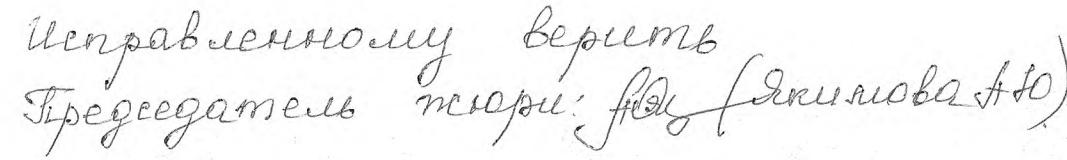 Исправленному верить
Председатель жюри: (Якимова АЮ)